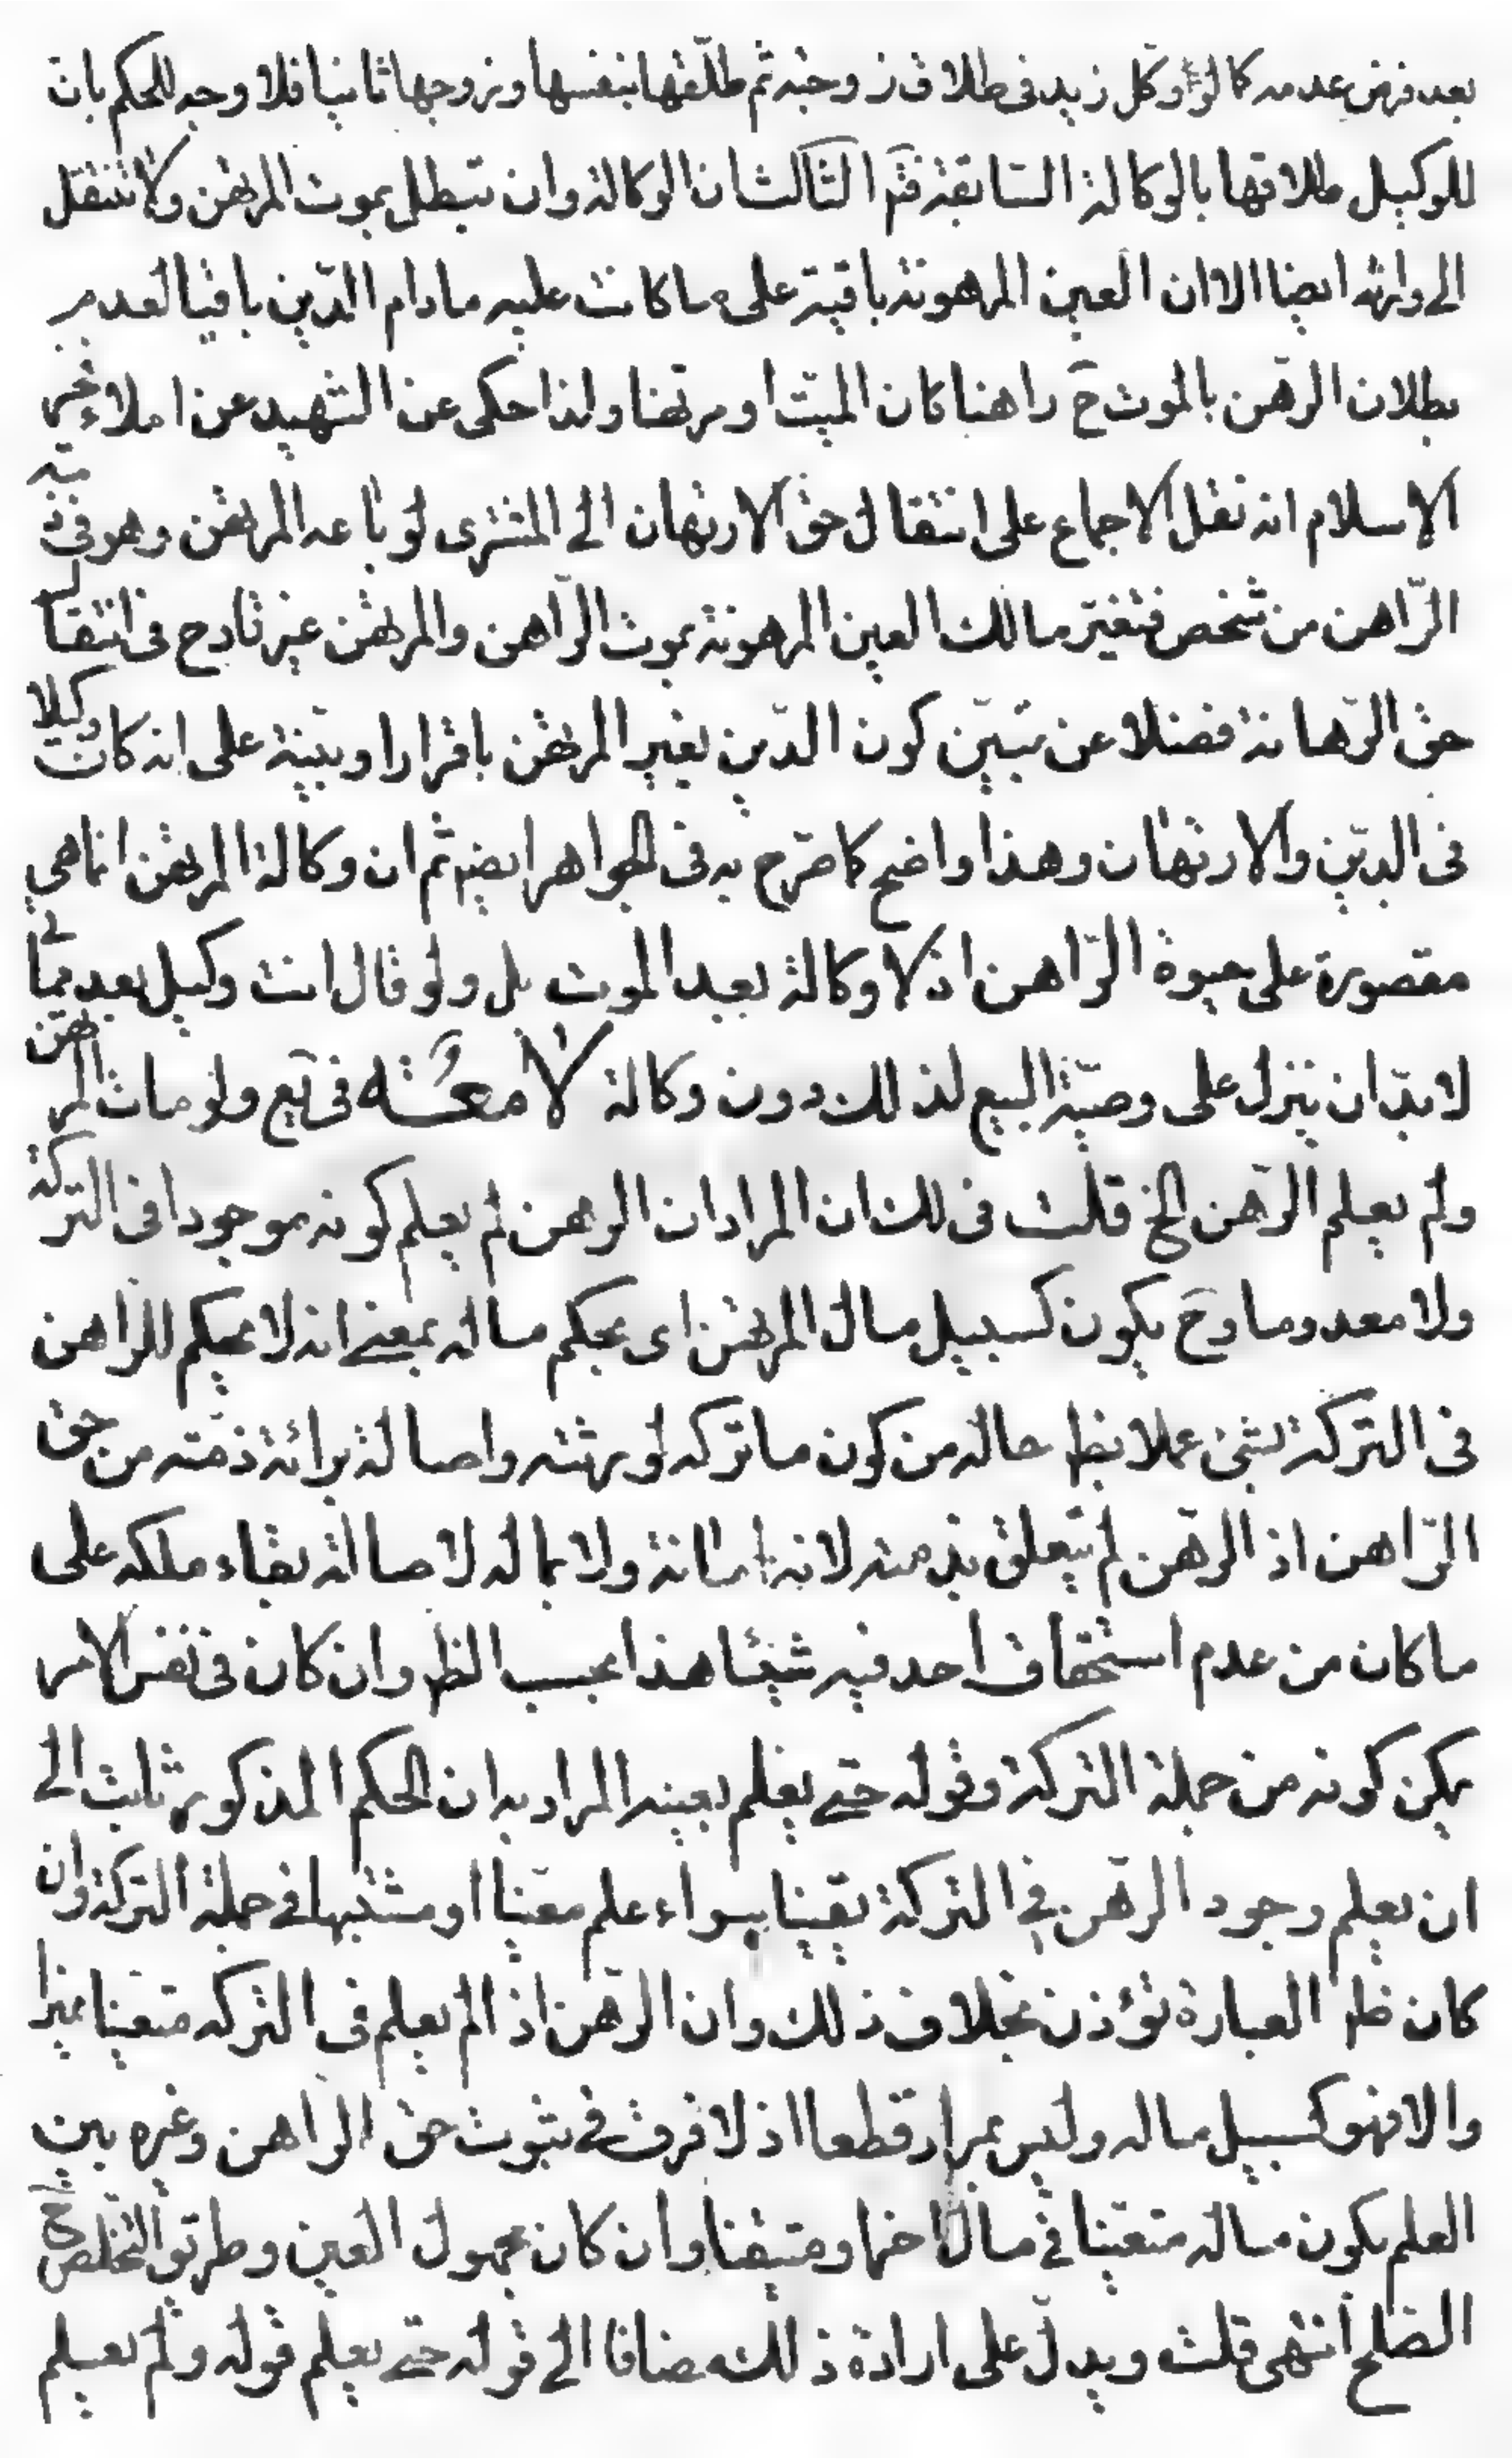 بعد فرض عدمه كما لو وكل زيد فى طلاق زوجته ثم طلّقها بنفسها وتزوجها ثانيا فلا وجه للحكم بان
للوكيل طلاقها بالوكالة السّابقة ثمّ الثّالث ان الوكالة وان تبطل بموت المرتهن ولا تنتقل
الى وارثه ايضا الا ان العين المرهونة باقية على ما كانت عليه مادام الدّين باقيا لعدم
بطلان الرّهن بالموت ح راهنا كان الميّت او مرتهنا ولذا حكى عن الشهيد عن املاء
الاسلام انه نقل الاجماع على انتقال حق الارتهان الى المشترى لو باعه المرتهن وهو فى
الرّاهن من شخص فتغيّر مالك العين المرهونة بموت الرّاهن والمرتهن غير قادح فى انتقال
حق الرّهانة فضلا عن تبيّن كون الدّين بغير المرتهن باقرار او ببيّنة على انه كان وكيلا
فى الدّين والارتهان وهذا واضح كما صرّح به فى الجواهر ايضا ثم ان وكالة المرتهن انما هى
مقصورة على حيوة الرّاهن اذ لا وكالة بعد الموت بل ولو قال انت وكيل بعد مماتى
لا بدّ ان ينزل على وصيّة البيع لذلك دون وكالة لامعة فى يع ولو مات المرتهن
ولم يعلم الرّهن الخ قلت فى لك ان المراد ان الرهن لم يعلم كونه موجودا فى التركة
ولا معدوما وح يكون كسبيل مال المرتهن اى بحكم ماله بمعنى انه لا يحكم للراهن
فى التركة بشئ عملا بظ حاله من كون ما تركه لورثته واصالة برائة ذمّته من حق
الرّاهن اذ الرّهن لم يتعلق بذمته لانه امانة ولا بماله لاصالة بقاء ملكه على
ما كان من عدم استحقاق احد فيه شيئا هذا بحسب الظ وان كان فى نفس الامر
يمكن كونه من جملة التركة وقوله حتى يعلم بعينه المراد به ان الحكم المذكور ثابت الى
ان يعلم وجود الرّهن فى التركة يقينا سواء علم معيّنا او مشتبها فى جملة التركة وان
كان ظ العبارة تؤذن بخلاف ذلك وان الرّهن اذا لم يعلم فى التركه متعيّنا متميزا
والا فهو كسبيل ماله وليس بمراد قطعا اذ لا فرق فى ثبوت حق الراهن وغيره بين
العلم بكون ماله متعيّنا فى مال اخر او متيقّنا وان كان مجهول العين وطريق التخلص ح
الصّلح انتهى قلت ويدلّ على ارادة ذلك مضافا الى قوله حتى يعلم قوله ولم يعلم